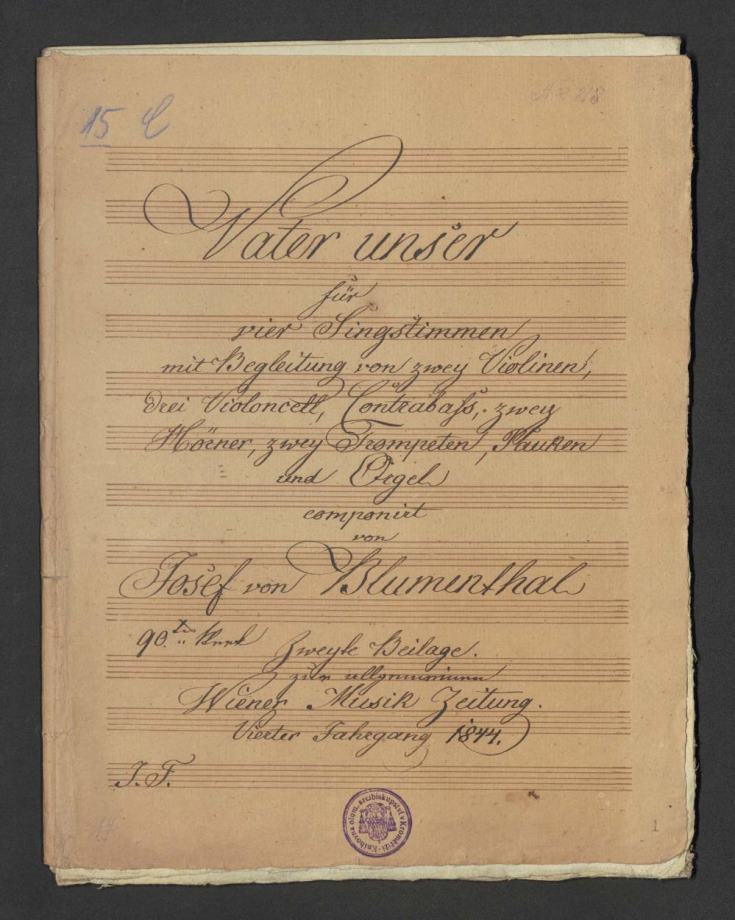 15 C
Vater unser
für
vier Singstimmen
mit Begleitung von zwey Violinen,
drei Violoncell, Contrabass, zwey
Hörner, zwey Trompeten, Pauken
und Orgel
componirt
von
Josef von Blumenthal
90.tes Werk Zweyte Beilage.
zur allgemeinen
Wiener Musik Zeitung.
Vierter Jahrgang 1844.
J. F.
Knihovna olom. arcibiskupství v Kroměříži
1